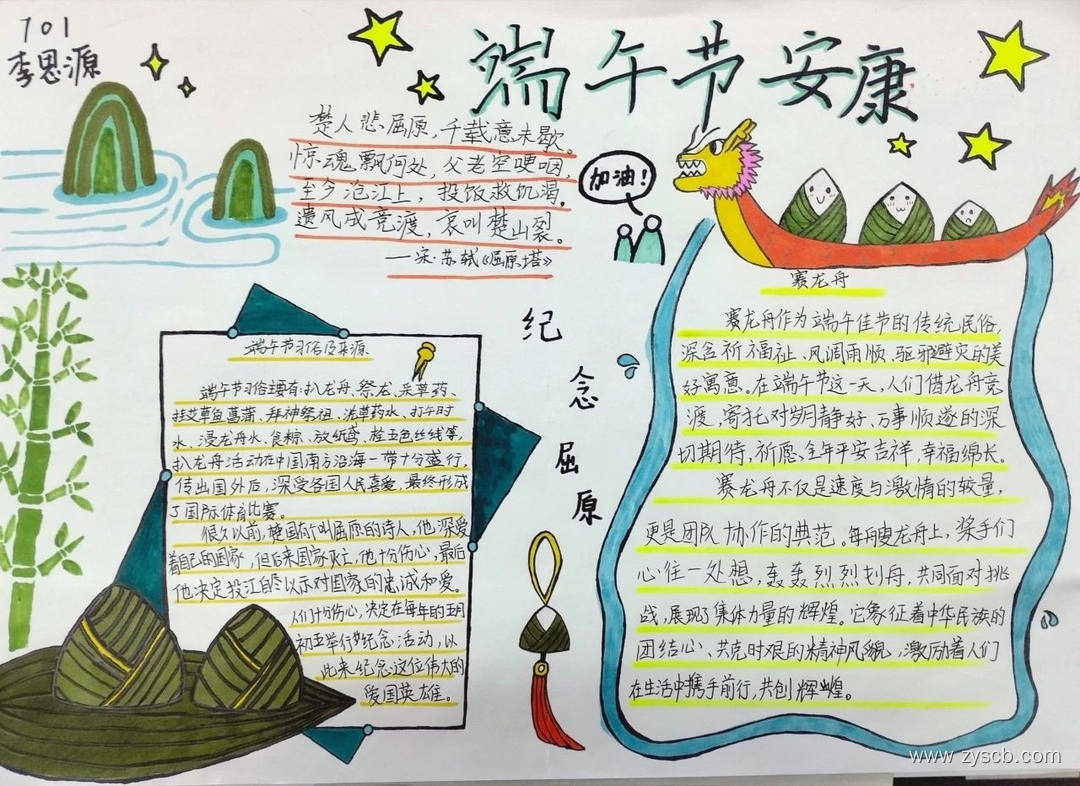 701
李思源
端午节安康
楚人悲屈原,千载意未歇。
惊魂飘何处,父老空哽咽,
至今沧江上,投饭救饥渴。
遗风成竞渡,哀叫楚山裂。
—宋·苏轼《屈原塔》
加油!
纪念屈原
端午节习俗及来源
端午节习俗主要有:扒龙舟、祭龙、采草药、
挂艾草与菖蒲、拜神祭祖、洗草药水、打午时
水、浸龙舟水、食粽、放纸鸢、拴五色丝线等,
扒龙舟活动在中国南方沿海一带十分盛行,
传出国外后,深受各国人民喜爱,最终形成
了国际体育比赛。
很久以前,楚国有个叫屈原的诗人,他深爱
着自己的国家,但后来国家灭亡,他十分伤心,最后
他决定投江自尽以示对国家的忠诚和爱。
人们十分伤心,决定在每年的五月
初五举行纪念活动,以
此来纪念这位伟大的
爱国英雄。
赛龙舟
赛龙舟作为端午佳节的传统民俗,
深含祈福祉、风调雨顺、驱邪避灾的美
好寓意。在端午节这一天,人们借龙舟竞
渡,寄托对岁月静好、万事顺遂的深
切期待,祈愿全年平安吉祥,幸福绵长。
赛龙舟不仅是速度与激情的较量,
更是团队协作的典范。每舟龙舟上,桨手们
心往一处想,轰轰烈烈划舟,共同面对挑
战,展现了集体力量的辉煌。它象征着中华民族的
团结心、共克时艰的精神风貌,激励着人们
在生活中携手前行,共创辉煌。
www.zyscb.com